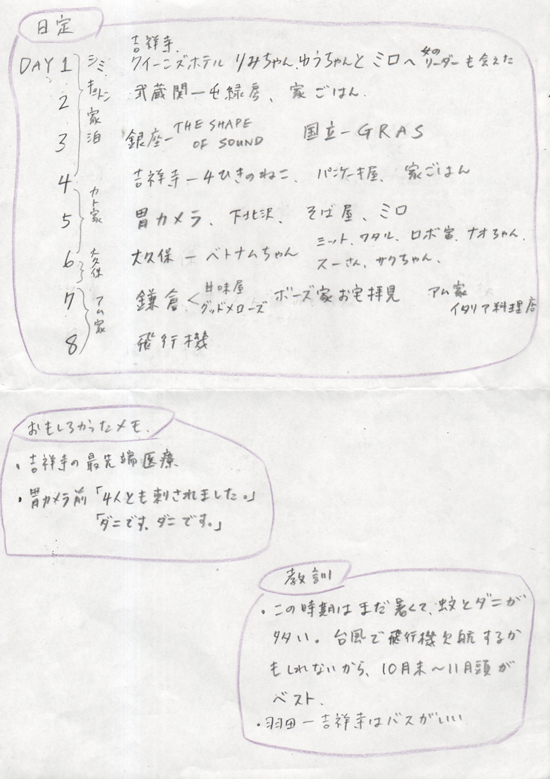 日定
吉祥寺.
DAY 1 クイーンズホテル りみちゃん、ゆうちゃんと ミロへ 女のリーダーも会えた
2 武蔵関一 緑房、家ごはん.
3 銀座ー THE SHAPE OF SOUND 国立ー GRAS
シミ、キョトン家泊
4 吉祥寺ー4ひきのねこ、パンケーキ屋、家ごはん
5 胃カメラ、下北沢、そば屋、ミロ
カト家
ミット、ワタル、ロボ宙、ナオちゃん、
6 大久保ーベトナムちゃん スーさん、サクちゃん、
大久保
7 鎌倉< 甘味屋 グッドメローズ ボーズ家お宅拝見 アム家 イタリア料理店
8 飛行機
アム家
おもしろかったメモ.
・吉祥寺の最先端医療
・胃カメラ前「4人とも刺されました。」
「ダニです、ダニです。」
教訓
・この時期はまだ暑くて、蚊とダニが
多い。台風で飛行機欠航するか
もしれないから、10月末〜11月頭が
ベスト.
・羽田ー吉祥寺はバスがいい